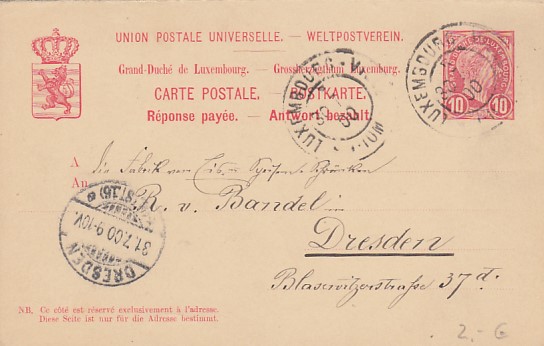 UNION POSTALE UNIVERSELLE. — WELTPOSTVEREIN.
Grand-Duché de Luxembourg. — Grossherzogthum Luxemburg.
CARTE POSTALE. — POSTKARTE.
Réponse payée. — Antwort bezahlt.
10 10
LUXEMBOURG-VILLE
LUXEMBOURG-VILLE
A
An
die Fabrik von Eis- Speisen-Schränken
R. v. Bandel
in
Dresden
Blasewitzerstraße 37 d.
DRESDEN
31.7.00 9-10V.
NB. Ce côté est réservé exclusivement à l'adresse.
Diese Seite ist nur für die Adresse bestimmt.
2.- G